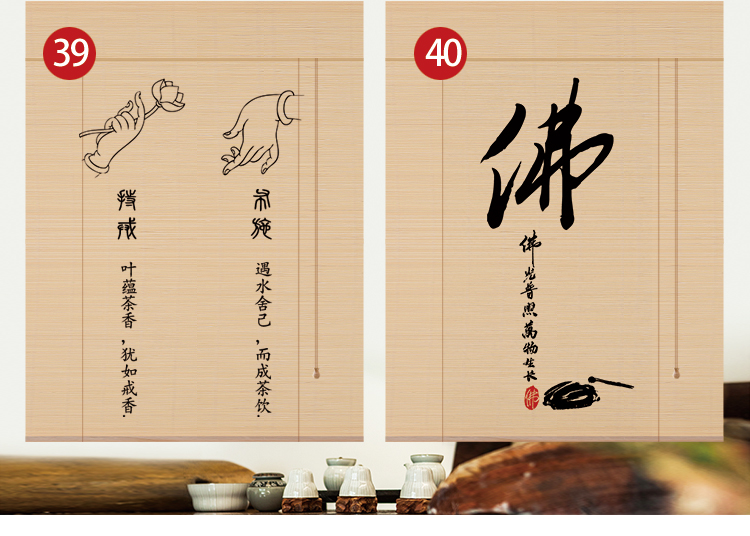 39
持戒
叶蕴茶香,犹如戒香.
布施
遇水舍己,而成茶饮.
40
佛
佛光普照萬物生长
佛